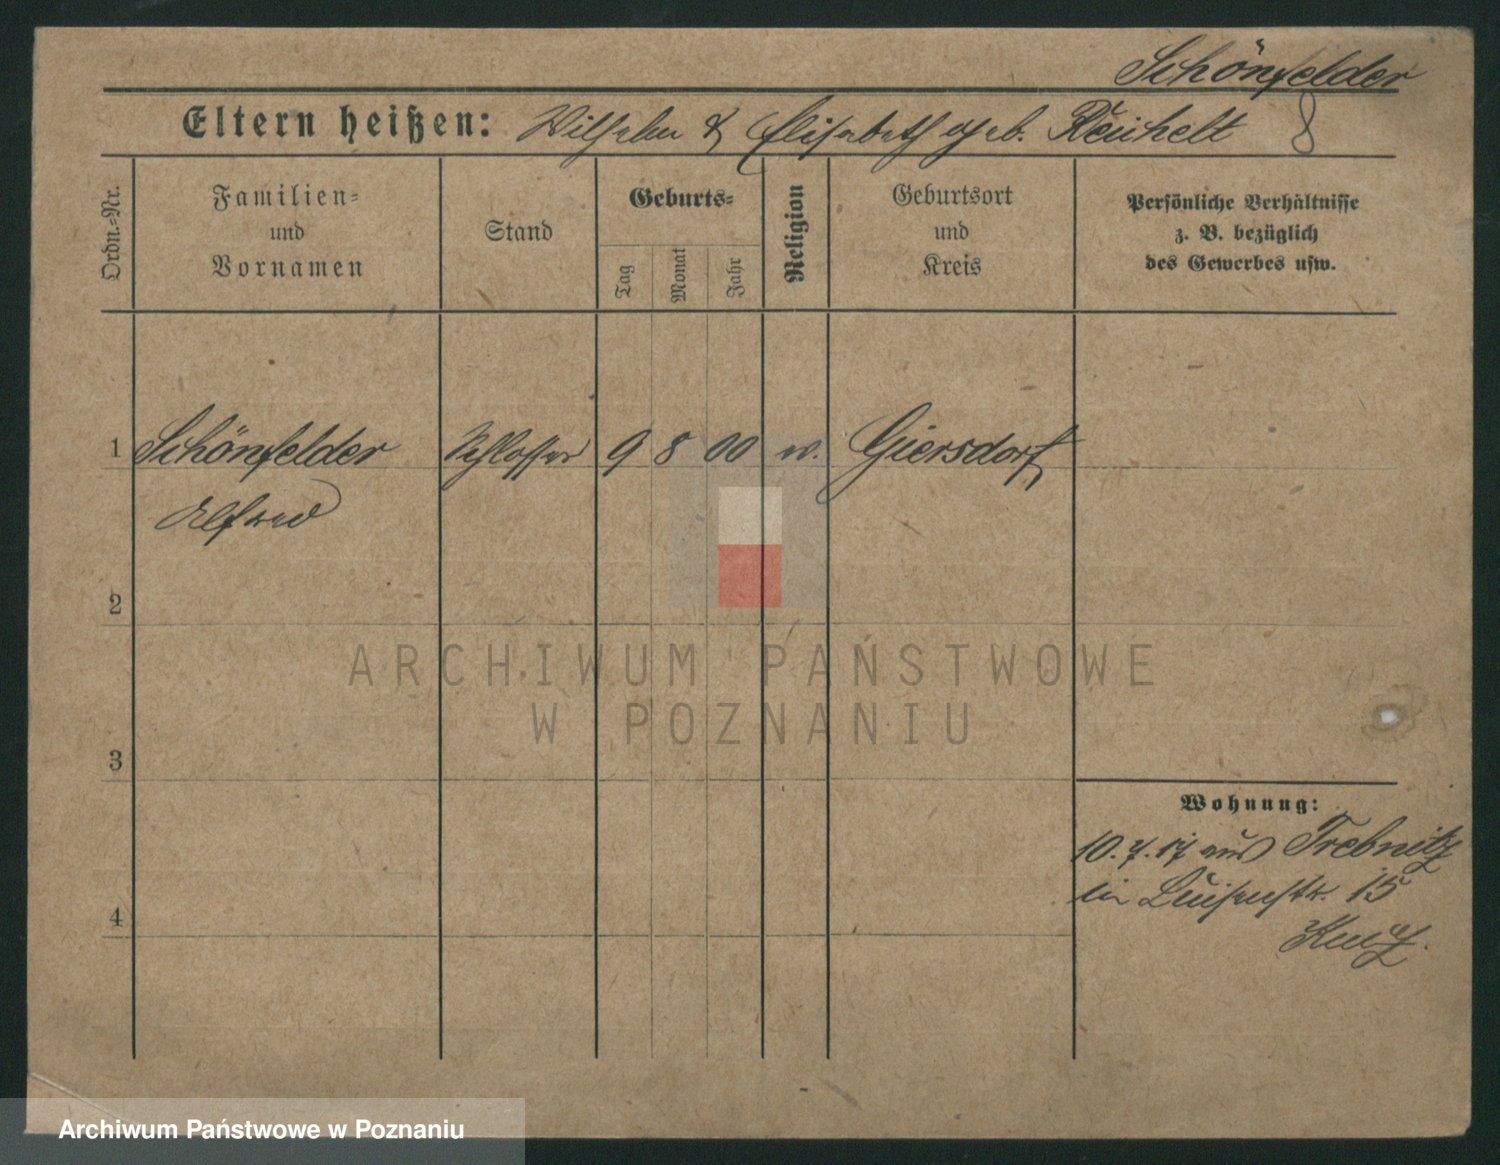 Schönfelder
Eltern heißen: Wilhelm & Elisabeth geb. Reichelt 8
Ordn.-Nr.
Familien-
und
Vornamen
Stand
Geburts-
Tag
Monat
Jahr
Religion
Geburtsort
und
Kreis
Persönliche Verhältnisse
z. B. bezüglich
des Gewerbes usw.
1 Schönfelder Schlosser 9 8 00 ev. Giersdorf
Alfred
2
ARCHIWUM PAŃSTWOWE
W POZNANIU
3
Wohnung:
10.7.17 aus Trebnitz
in Luisenstr. 15
4
Archiwum Państwowe w Poznaniu